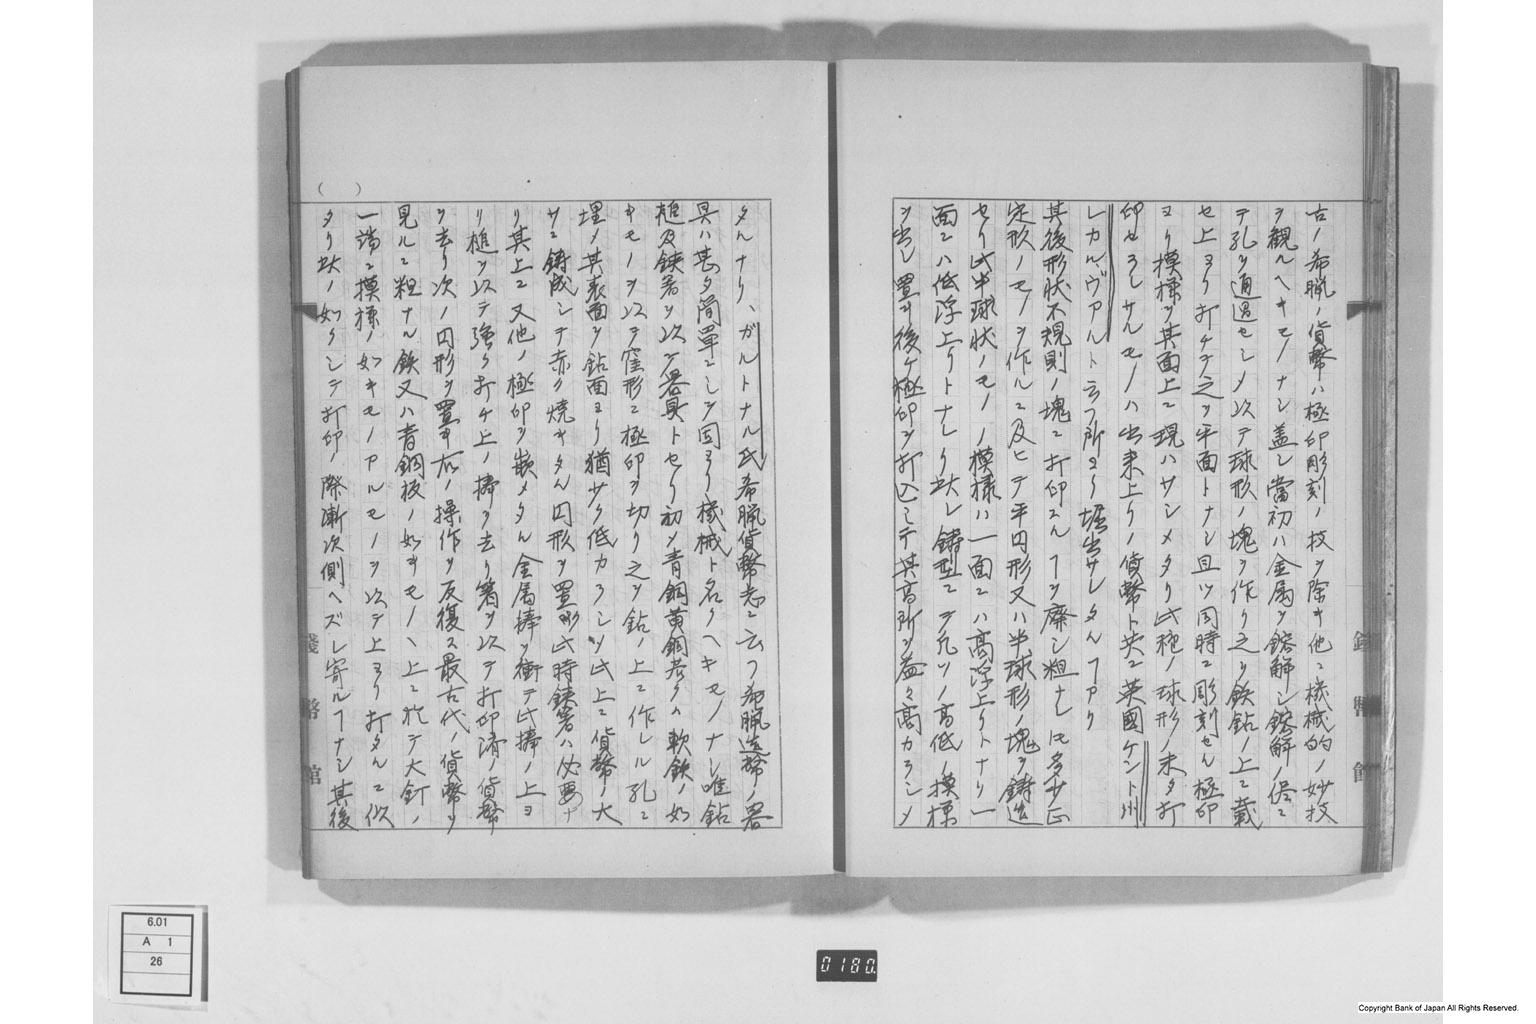 古ノ希臘ノ貨幣ハ極印彫刻ノ技ヲ除キ他ニ機械的ノ妙技
ヲ観ルヘキモノナシ蓋シ當初ハ金属ヲ鎔解シ鎔解ノ侭ニ
テ孔ヲ通過セシメ以テ球形ノ塊ヲ作リ之ヲ鉄鉆ノ上ニ載
セ上ヨリ打チテ之ヲ平面トナシ且ツ同時ニ彫刻セル極印
ヨリ模様ヲ其面上ニ現ハサシメタリ此種ノ球形ノ未タ打
印セラレサルモノハ出来上リノ貨幣ト共ニ英國ケント州
レカルヴアルト云フ所ヨリ堀出サレタルヿアリ
其後形状不規則ノ塊ニ打印スルヿヲ廃シ粗ナレ𪜈多少正
定形ノモノヲ作ルニ及ヒテ平円形又ハ半球形ノ塊ヲ鋳造
セリ此半球状ノモノノ模様ハ一面ニハ高浮上リトナリ一
面ニハ低浮上リトナレリ此レ鋳型ニテ凡ソノ高低ノ模様
ヲ出シ置キ後ケ極印ヲ打込ミテ其高所ヲ益々高カラシメ
タルナリ、ガルトナル氏希臘貨幣志ニ云フ希臘造幣ノ器
具ハ甚タ簡單ニシテ固ヨリ機械ト名クヘキモノナシ唯鉆
槌及鋏箸ヲ以テ器具トセリ初メ青銅黄銅若クハ軟鉄ノ如
キモノヲ以テ窪形ニ極印ヲ切リ之ヲ鉆ノ上ニ作レル孔ニ
埋メ其表面ヲ鉆面ヨリ猶少ク低カラシメ此上ニ貨幣ノ大
サニ鋳成シテ赤ク焼キタル円形ヲ置ク此時鋏箸ハ必要ナ
リ其上ニ又他ノ極印ヲ嵌メタル金属捧ヲ衝テ此捧ノ上ヨ
リ槌ヲ以テ強ク打チ上ノ捧ヲ去リ箸ヲ以テ打印済ノ貨幣
ヲ去リ次ノ円形ヲ置キ右ノ操作ヲ反復ス最古代ノ貨幣ヲ
見ルニ粗ナル鉄又ハ青銅板ノ如キモノヽ上ニ於テ大釘ノ
一端ニ模様ノ如キモノアルモノヲ以テ上ヨリ打タルニ似
タリ此ノ如クシテ打印ノ際漸次側ヘズレ寄ルヿナシ其後
錢幣館
錢幣館
6.01
A 1
26
0180
Copyright Bank of Japan All Rights Reserved.